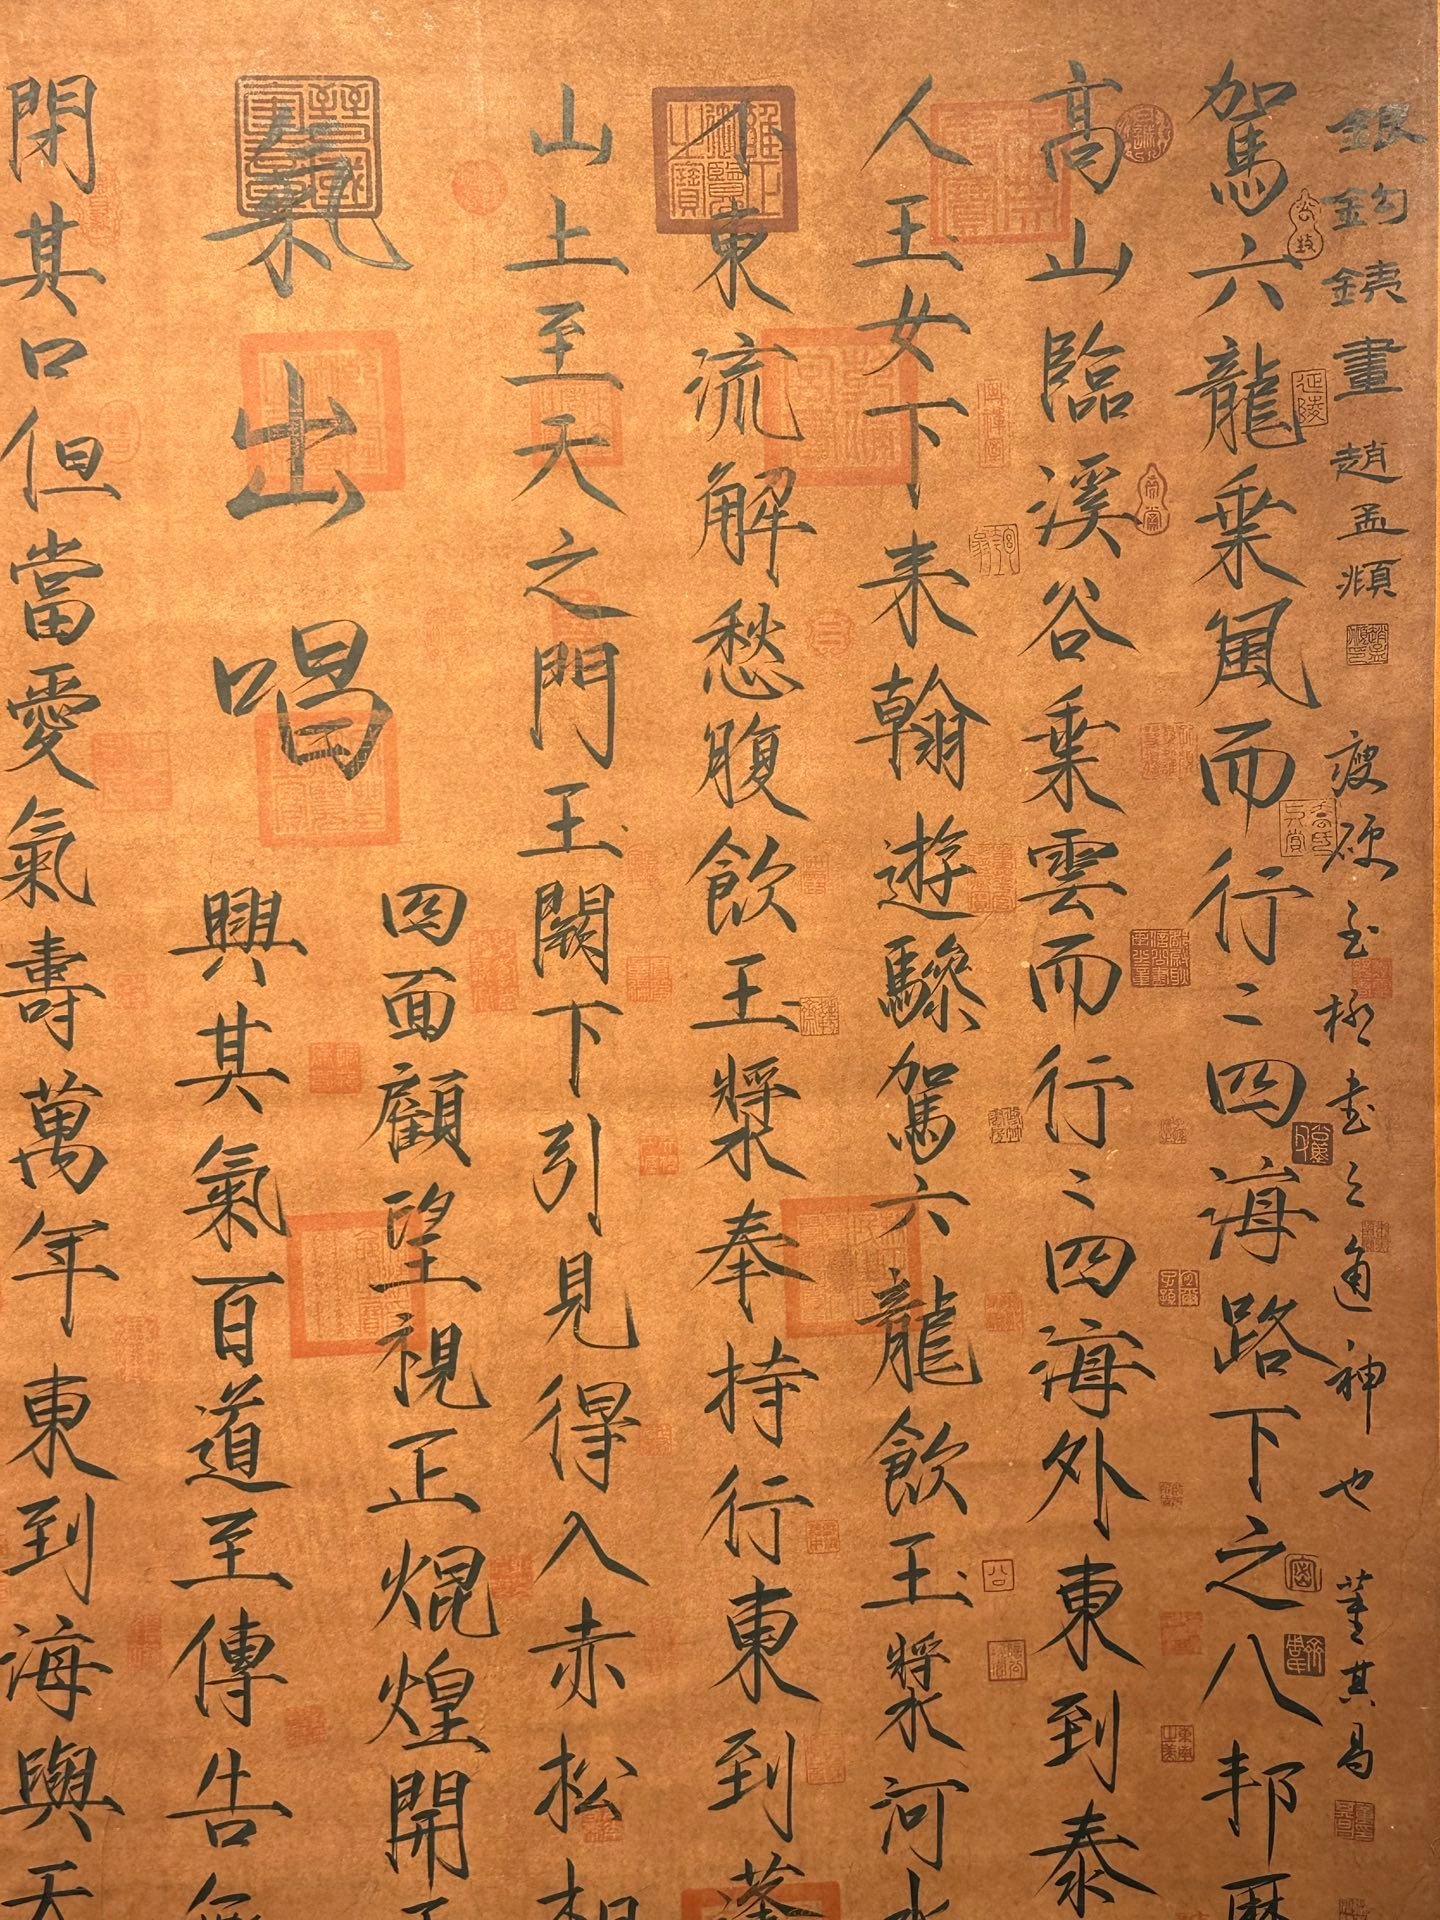 銀鈎銕畫 趙孟頫 瘦硬至極書之通神也 董其昌
駕六龍乗風而行二四海路下之八邦歷
高山臨溪谷乗雲而行二四海外東到泰
人王女下来翱遊驂駕六龍飲王漿河水
不東流解愁腹飲王漿奉持行東到蓬
山上至天之門王闕下引見得入赤松相
四面顧望視正焜煌開王
氣出唱
興其氣百道至傳告無
閉其口但當愛氣壽萬年東到海與天